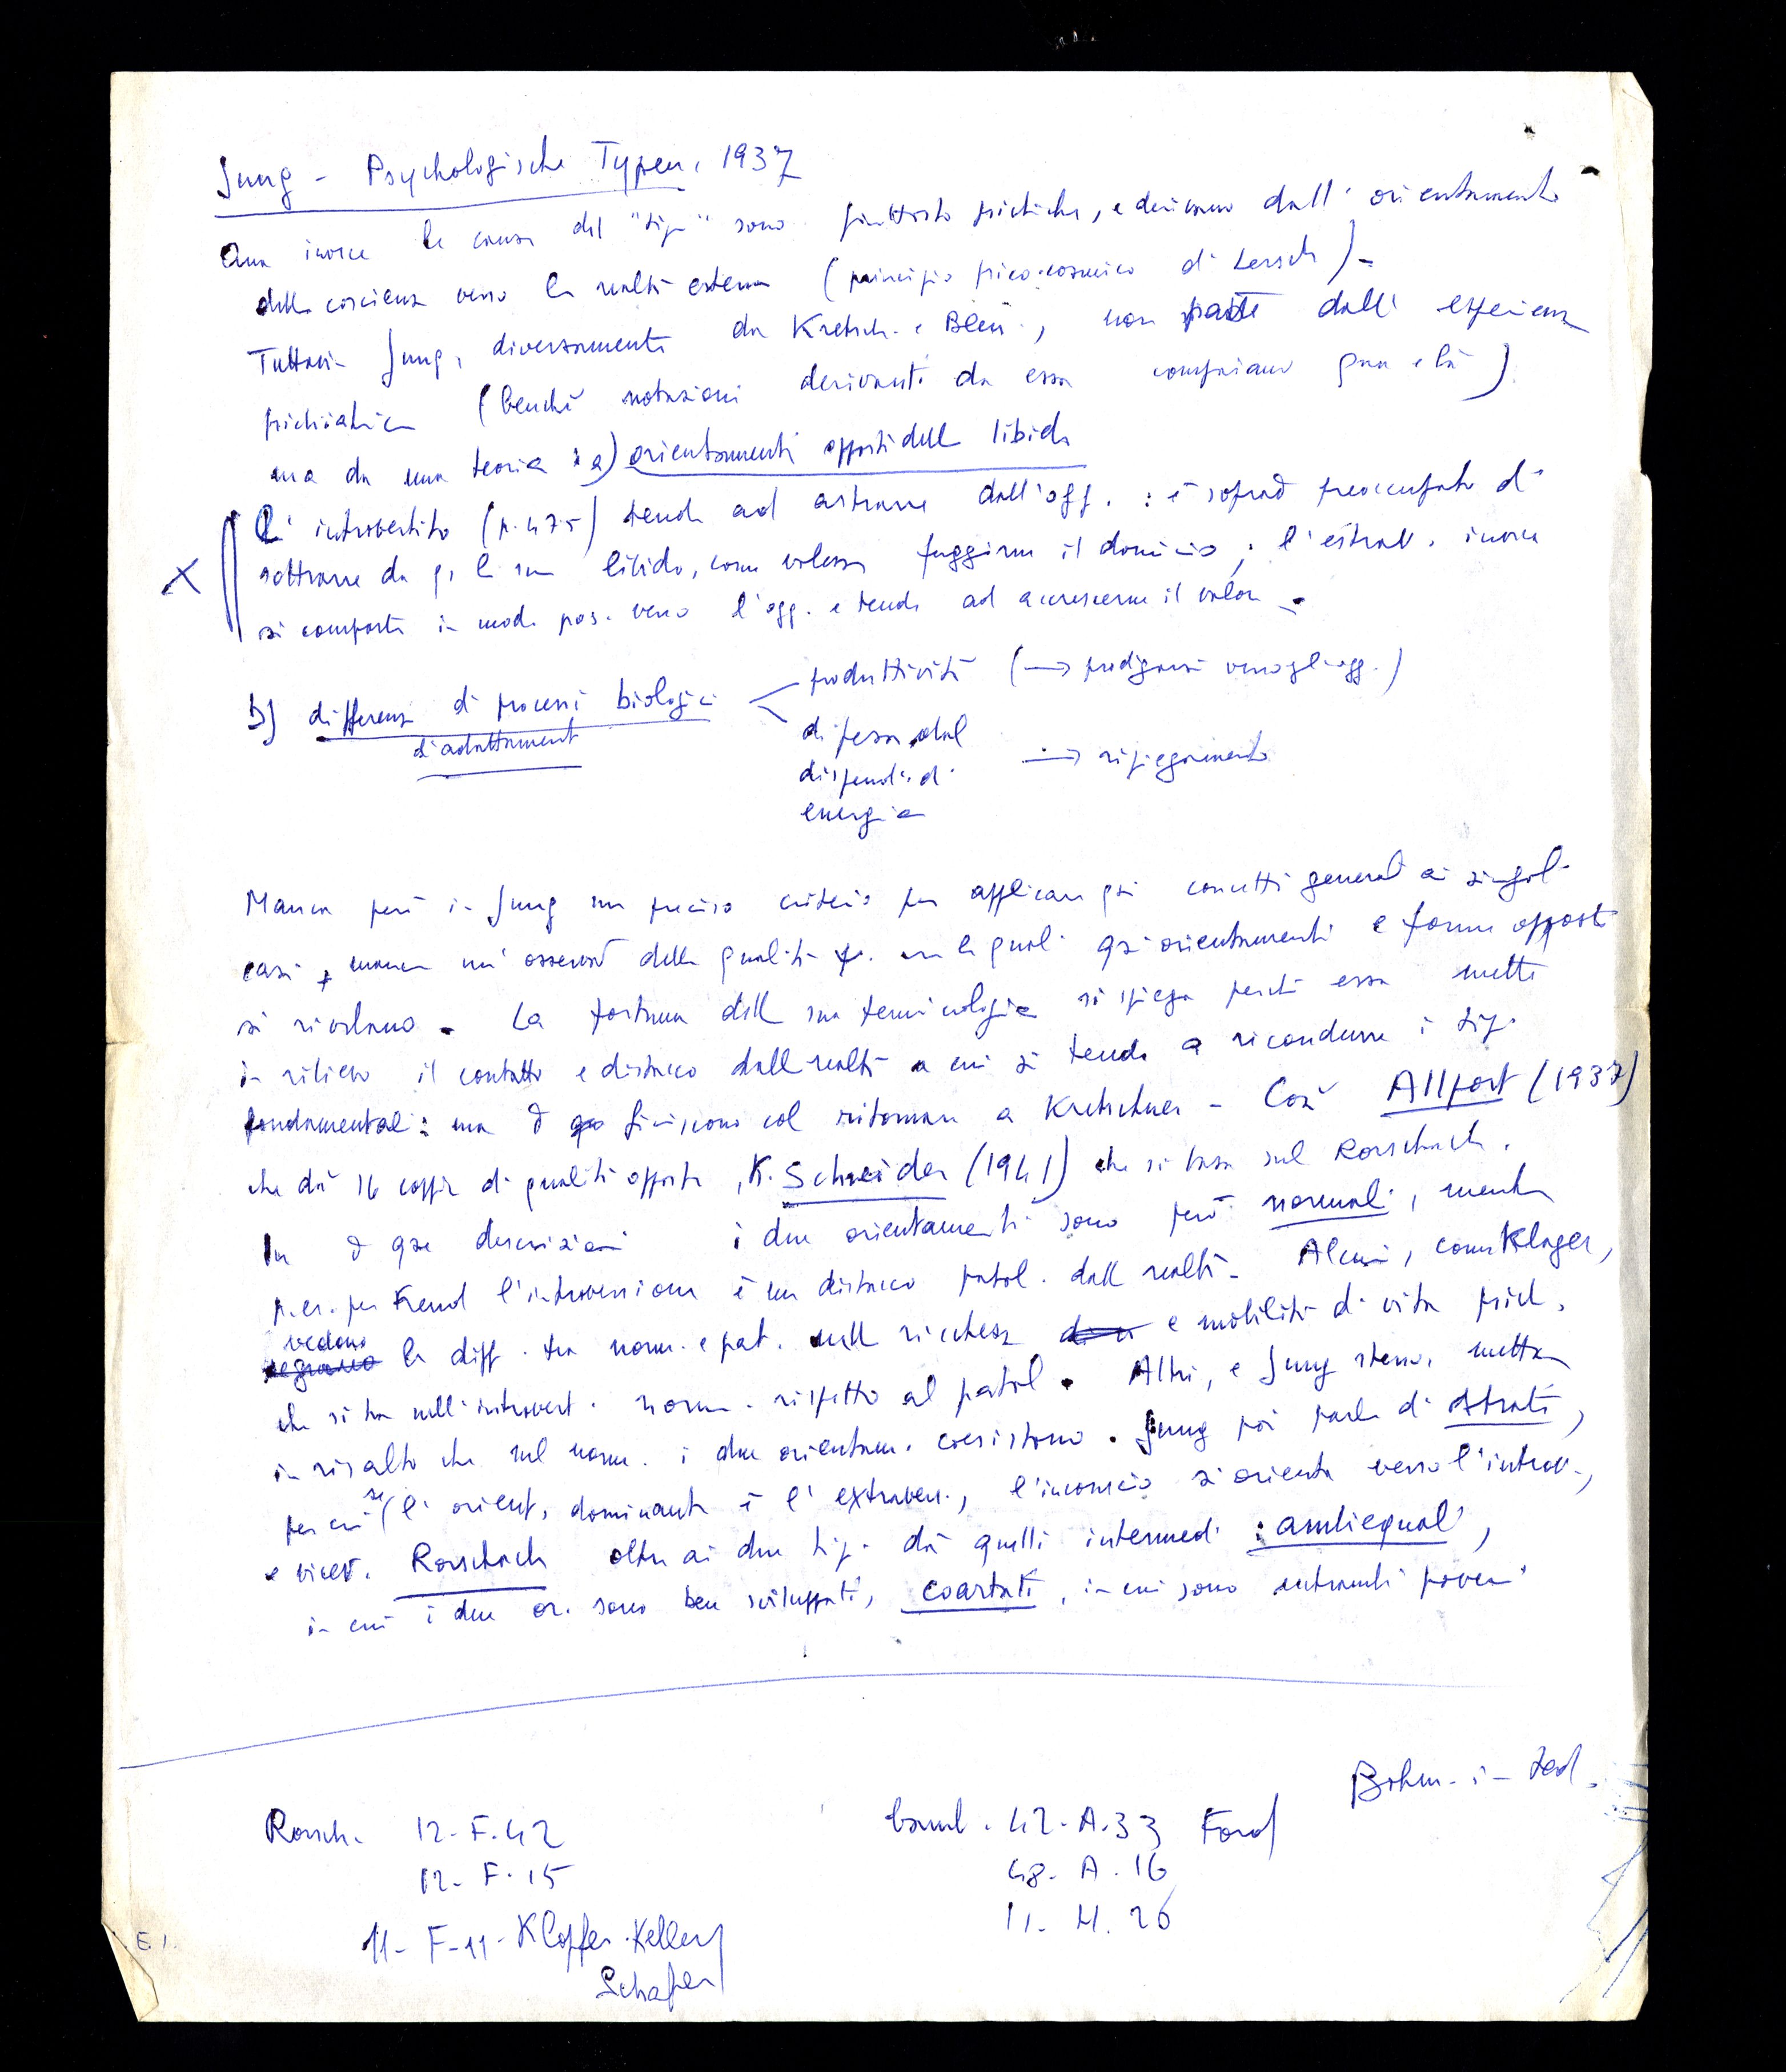 Jung - Psychologische Typen, 1937
Qua invece le cause del "tipo" sono piuttosto psichiche, e derivano dall'orientamento
della coscienza verso la realtà esterna (principio psico-cosmico di Lersch)-
Tuttavia Jung, diversamente da Kretsch. e Bleu., non parte dall'esperienza
psichiatrica (benché notazioni derivanti da essa compaiano qua e là)
ma da una teoria: a) orientamenti opposti della libido
L'introvertito (p. 475) tende ad astrarre dall'ogg.: è preoccupato di
sottrarre da q. la sua libido, come volesse fuggirne il dominio; l'estrav. invece
si comporta in modo pos. verso l'ogg. e tende ad accrescerne il valore.
b) differenza di processi biologici
d'adattamento
produttività (→ prodigarsi verso gli ogg.)
difesa dal
dispendio di
energia
→ ripiegamento
Manca però in Jung un preciso criterio per applicare qsi concetti generali ai singoli
casi, manca un' delle qualità ψ. con le quali qsi orientamenti e forme opposte
si rivelano. La fortuna della sua terminologia si spiega perché essa mette
in rilievo il contatto e distacco dalla realtà a cui si tende a ricondurre i tipi
fondamentali: ma finiscono col ritornare a Kretschmer - Così Allport (1937)
che dà 16 coppie di qualità opposte, K. Schneider (1941) che si basa sul Rorschach.
In qse descrizioni i due orientamenti sono però normali, mentre
p.es. per Freud l'introversione è un distacco patol. dalla realtà- Alcuni, come Klages,
vedono la diff. tra norm. e pat. nella ricchezza e mobilità di vita psich.
che si ha nell'introvert. norm. rispetto al patol. Altri, e Jung stesso, mettono
in risalto che nel norm. i due orientam. coesistono. Jung poi parla di strati,
per cui se l'orient. dominante è l'extravers., l'inconscio si orienta verso l'introv.,
e vicev. Rorschach oltre ai due tipi dà quelli intermedi: ambiequali,
in cui i due or. sono ben sviluppati, coartati, in cui sono entrambi poveri
Bohm - in ted.
Rorsch. 12-F.42
12-F.15
11-F-11-Klopfer-Kelley
Schafer
42-A.33 Ford
48-A.16
11-H.26
E1.